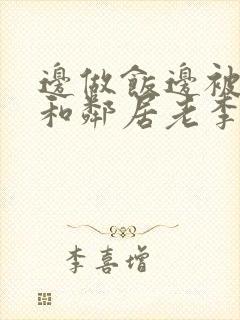 邊做飯邊被
和鄰居老李
李喜增